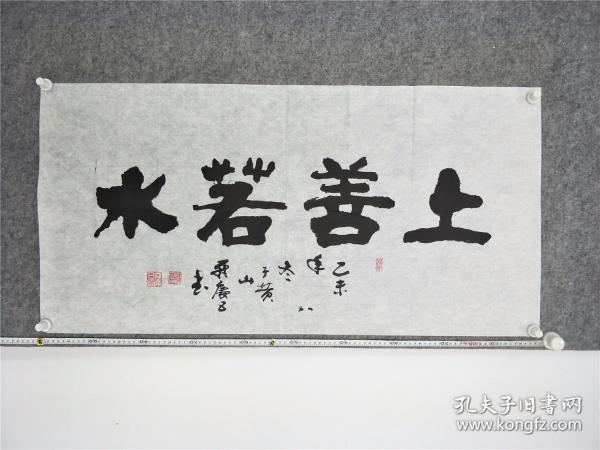 上善若水
乙未
年
冬
于黄
山
书
孔夫子旧书网
www.kongfz.com